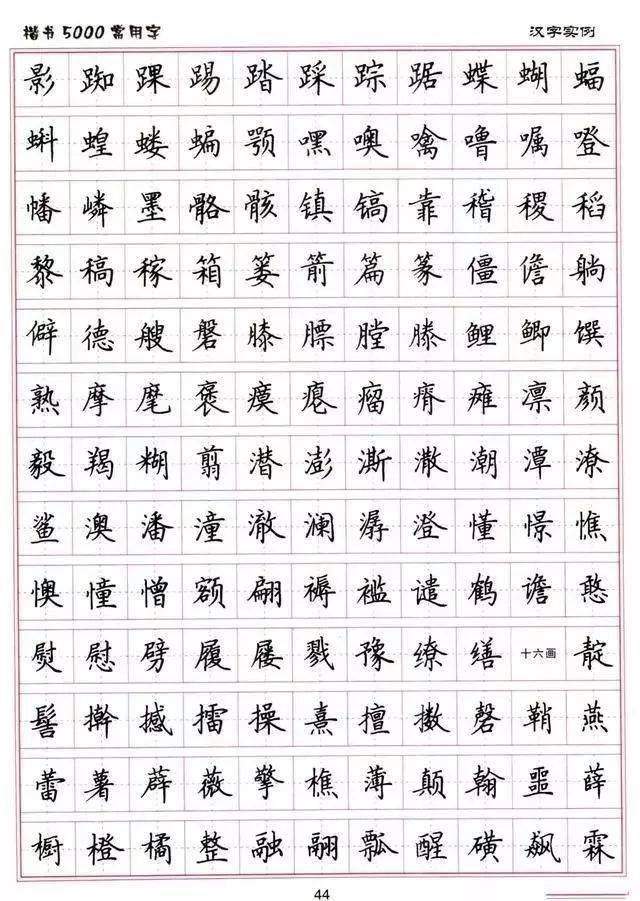 楷书5000常用字 汉字实例
影 踟 踝 踢 踏 踩 踪 踞 蝶 蝴 蝠
蝌 蝗 蝼 蝙 颚 嘿 噢 噙 噜 嘱 噔
幡 嶙 墨 骼 骸 镇 镐 靠 稽 稷 稻
黎 稿 稼 箱 篓 箭 篇 篆 僵 儋 躺
僻 德 艘 磐 膝 膘 膛 滕 鲤 鲫 馔
熟 摩 麾 褒 瘼 瘪 瘤 瘠 瘫 凛 颜
毅 羯 糊 翦 潜 澎 澌 潵 潮 潭 潦
鲨 澳 潘 潼 澈 澜 潺 澄 懂 憬 憔
懊 憧 憎 额 翩 褥 褴 谴 鹤 谵 憨
熨 慰 劈 履 屦 戮 豫 缭 缮 十六画 靛
髻 擀 撼 擂 操 熹 擅 擞 磬 鞘 燕
蕾 薯 薜 薇 擎 樵 薄 颠 翰 噩 薛
橱 橙 橘 整 融 翮 瓢 醒 磺 飙 霖
44